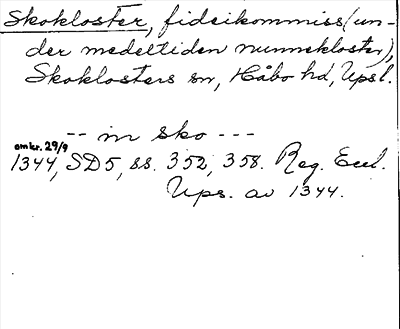 Skokloster, fideikommiss (un-
der medeltiden nunnekloster),
Skoklosters sn, Håbo hd, Upsl.
-- in sko ---
omkr. 29/9
1344, SD 5, ss. 352, 358. Reg. Eccl.
Ups. av 1344.